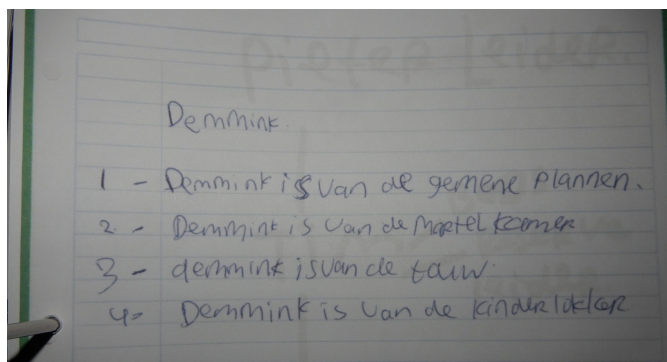 pieter Leiden
Demmink.
1 - Demmink is van de gemene plannen.
2 - Demmink is van de Martel kamer
3 - demmink is van de touw.
4 - Demmink is van de kinderlokker